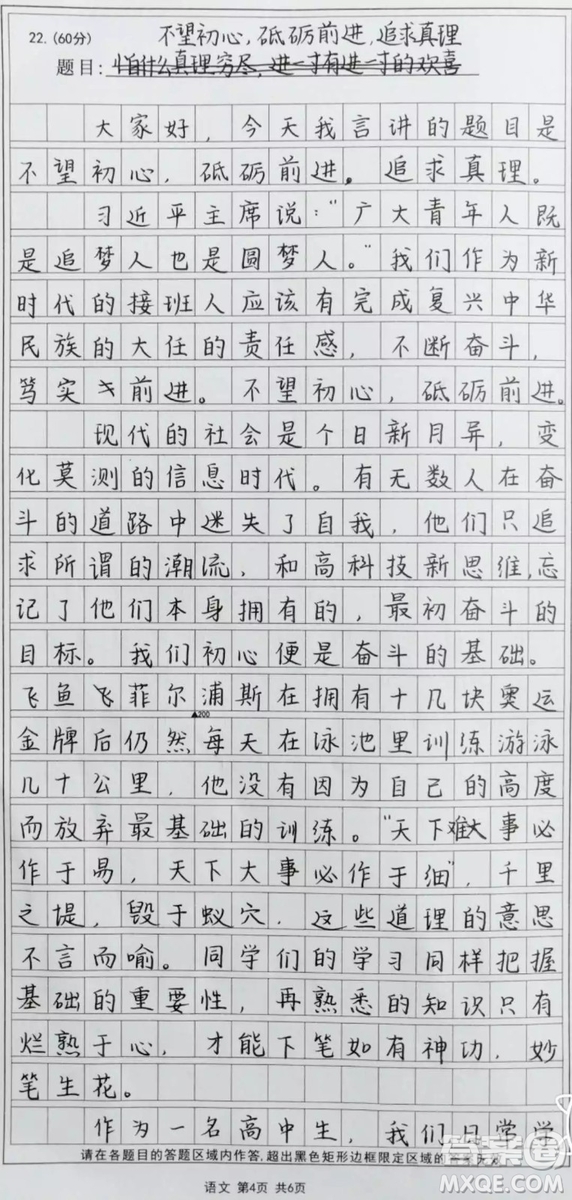 22.(60分) 不望初心,砥砺前进,追求真理
题目:怕什么真理穷尽,进一寸有进一寸的欢喜
大家好,今天我言讲的题目是
不望初心,砥砺前进。追求真理。
习近平主席说:"广大青年人既
是追梦人也是圆梦人。"我们作为新
时代的接班人应该有完成复兴中华
民族的大任的责任感,不断奋斗,
笃实 前进。不望初心,砥砺前进。
现代的社会是个日新月异,变
化莫测的信息时代。有无数人在奋
斗的道路中迷失了自我,他们只追
求所谓的潮流,和高科技新思维,忘
记了他们本身拥有的,最初奋斗的
目标。我们初心便是奋斗的基础。
飞鱼飞菲尔浦斯在拥有十几块奥运
▲200
金牌后仍然每天在泳池里训练游泳
几十公里,他没有因为自己的高度
而放弃最基础的训练。"天下难大事必
作于易,天下大事必作于细",千里
之堤,毁于蚁穴.这些道理的意思
不言而喻。同学们的学习同样把握
基础的重要性,再熟悉的知识只有
烂熟于心,才能下笔如有神功,妙
笔生花。
作为一名高中生,我们日常学
请在各题目的答题区域内作答,超出黑色矩形边框限定区域的答案无效
语文 第4页 共6页
答案圈
MXQE.COM